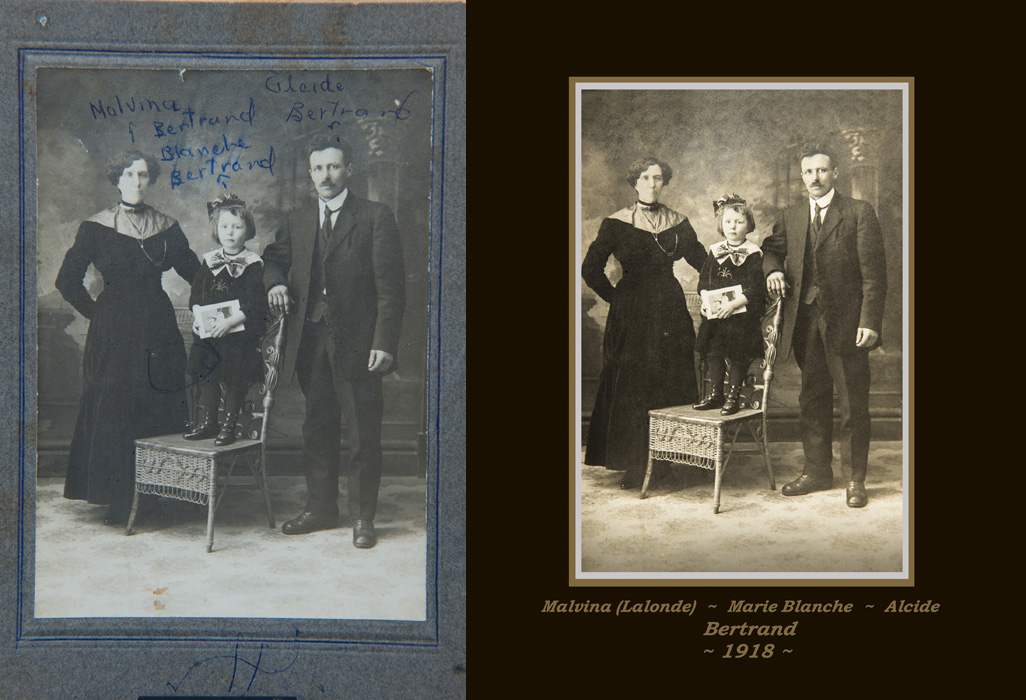 Alcide
Bertrand
Malvina
Bertrand
Blanche
Bertrand
Malvina (Lalonde) ~ Marie Blanche ~ Alcide
Bertrand
~ 1918 ~